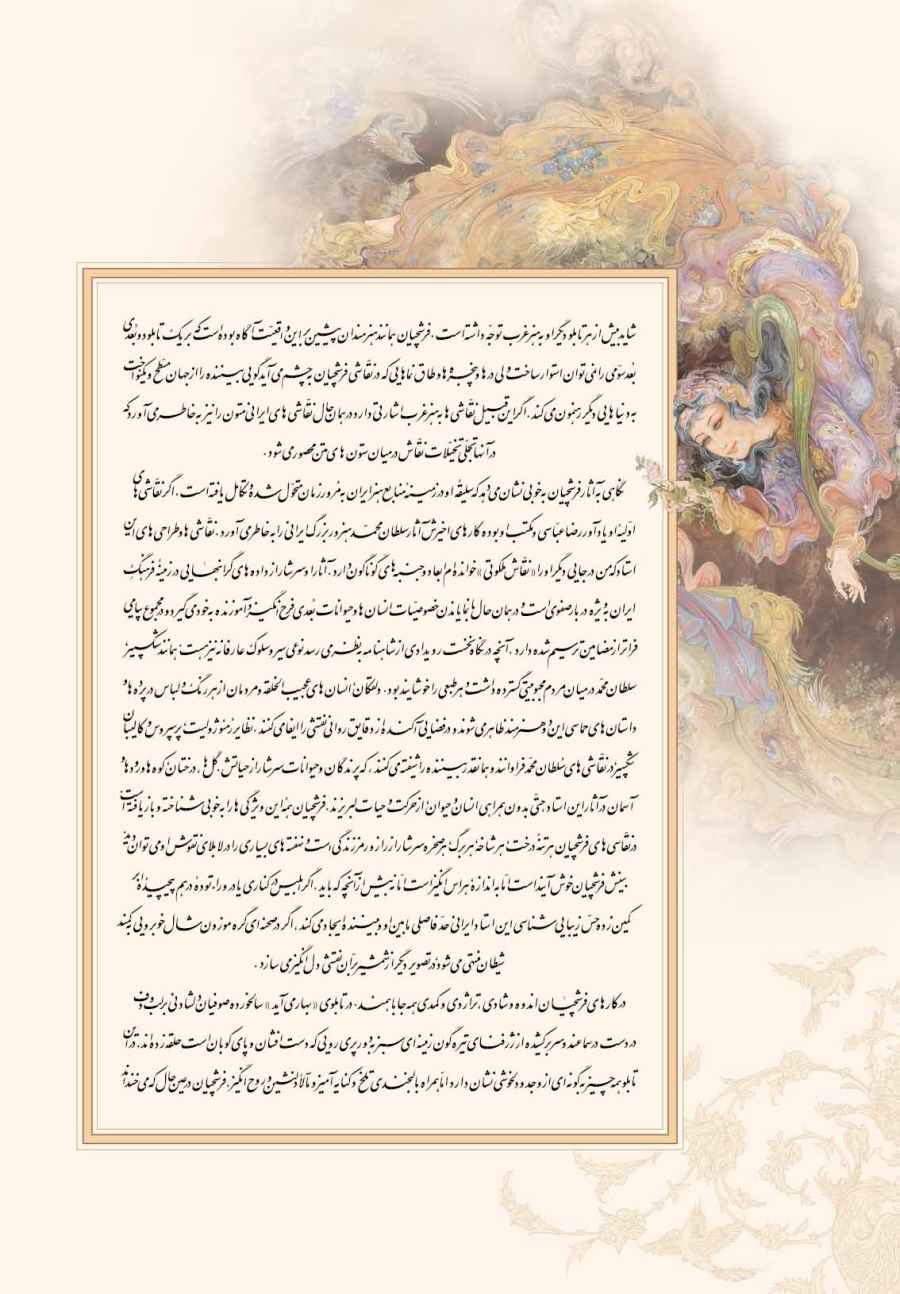 شاید بیش از هر تابلو دیگر او به هنر غرب توجّه داشته است. فرشچیان همانند هنرمندان پیشین بر این واقعیّت آگاه بوده است که بر یک تابلو دوبُعدی
بُعد سوّمی را نمی‌توان استوار ساخت ولی درها و پنجره‌ها و طاق نماهایی که در نقّاشی فرشچیان به چشم می‌آید گویی بیننده را از جهان مسطّح و یکنواخت
به دنیاهایی دیگر رهنمون می‌کند. اگر این قبیل نقّاشی‌ها به هنر غرب اشارتی دارد در همان حال نقّاشی‌های ایرانی متون را نیز به خاطر می‌آورد که
در آنها تجلّی تخیّلات نقّاش در میان ستون‌های متن محصور می‌شود.
نگاهی به آثار فرشچیان به خوبی نشان می‌دهد که سلیقهٔ او در زمینهٔ منابع هنر ایران به مرور زمان متحوّل شده و تکامل یافته است. اگر نقّاشی‌های
اوّلیهٔ او یادآور رضا عبّاسی و مکتب او بوده کارهای اخیرش آثار سلطان محمّد هنرور بزرگ ایرانی را به خاطر می‌آورد. نقّاشی‌ها و طراحی‌های این
استاد که من در جایی دیگر او را «نقّاش ملکوتی» خوانده‌ام ابعاد و جنبه‌های گوناگون دارد. آثار او سرشار از داده‌های گرانبهایی در زمینهٔ فرهنگِ
ایران به ویژه دربار صفوی است و در همان حال با نمایاندن خصوصیّات انسان‌ها و حیوانات بُعدی فرح‌انگیز و آموزنده به خود می‌گیرد و در مجموع پیامی
فراتر از مضامین ترسیم شده دارد. آنچه در نگاه نخست رویدادی از شاهنامه به نظر می‌رسد نوعی سیر و سلوک عارفانه نیز هست؛ همانند شکسپیر
سلطان محمّد در میان مردم محبوبیّتی گسترده داشت و هر طبعی را خوشایند بود. دلقکان و انسان‌های عجیب‌الخلقه و مردمان از هر رنگ و لباس در پرده‌ها و
داستان‌های حماسی این دو هنرمند ظاهر می‌شوند و در فضایی آکنده از دقایق روانی نقشی را ایفا می‌کنند. نظایر رُمئو و ژولیت پرسپروس و کالیبان
شکسپیر در نقّاشی‌های سلطان محمّد فراوانند و همانقدر بیننده را شیفته می‌کنند، که پرندگان و حیوانات سرشار از حیاتش. گل‌ها، درختان کوه‌ها و رودها و
آسمان در آثار این استاد حتّی بدون همراهی انسان و حیوان از حرکت و حیات لبریزند. فرشچیان همهٔ این ویژگی‌ها را به خوبی شناخته و بازیافته است
در نقّاسی‌های فرشچیان هر تنهٔ درخت هر شاخهٔ هر برگ هر صخره سرشار از راز و رمز زندگی است و نهفته‌های بسیاری را در لابلای نقوش او می‌توان دید
بینش فرشچیان خوش‌آیند است امّا به اندازهٔ هراس‌انگیز است امّا نه بیش از آنچه که باید. اگر ابلیس در کناری یا در وراء توده درهم پیچیدهٔ ابر
کمین زده حس زیبایی شناسی این استاد ایرانی حدّ فاصلی مابین او و بیننده ایجاد می‌کند، اگر در صحنه‌ای گره موزون شال خوبرویی به کمند
شیطان منتهی می‌شود در تصویر دیگر از شمشیر برّان نقشی دل‌انگیز می‌سازد.
در کارهای فرشچیان اندوه و شادی، تراژدی و کمدی همه جا با همند. در تابلوی «بهار می‌آید» سالخورده صوفیان ولشادونی بر لب و دف
در دست در سماعند و سر برکشیده از ژرفنای تیره‌گون زمینه‌ای سبز به دور پری رویی که دست افشان و پای کوبان است حلقه زده‌اند. در این
تابلو همه چیز به گونه‌ای از وجد و دلخوشی نشان دارد امّا همراه با لبخندی تلخ و کنایه‌آمیز و مآلاً دلنشین و روح انگیز. فرشچیان در عین حال که می‌خنداند